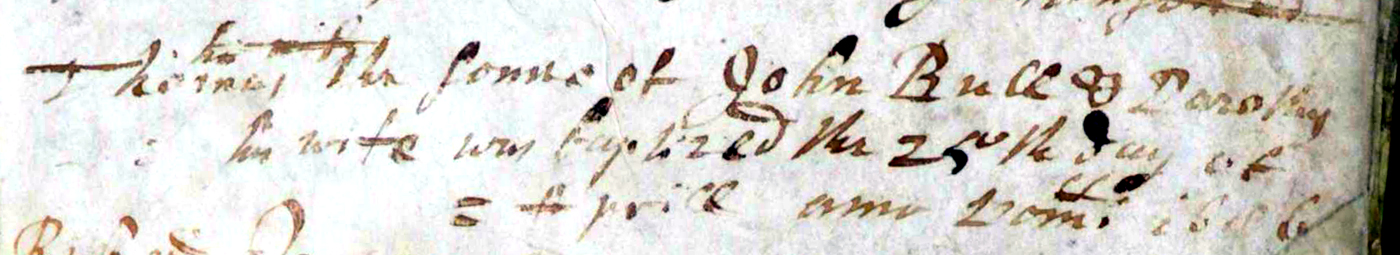 Thomas the sonne of John Bull & Dorothy
his wife was baptized the 25th day of
= Aprill anno Domi
Richard